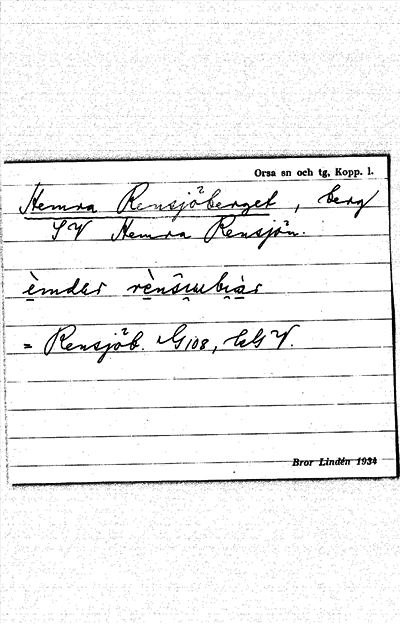 Orsa sn och tg, Kopp. l.
Hemra Rensjöberget, berg
SV Hemra Rensjön.
= Rensjöb. G108,
Bror Lindén 1934